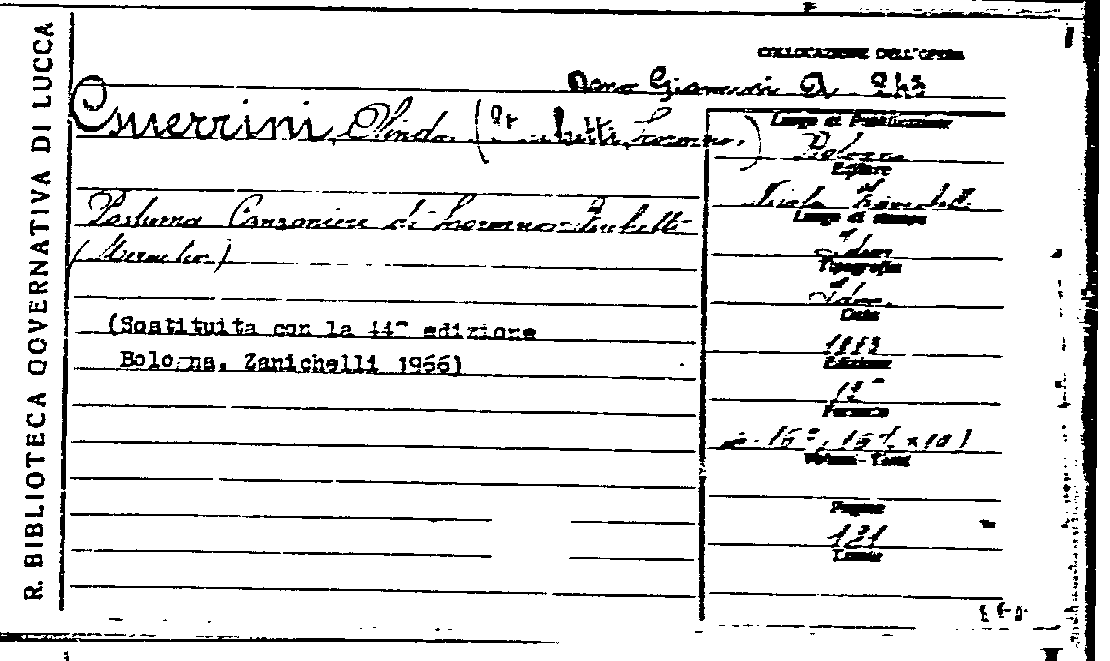 R. BIBLIOTECA GOVERNATIVA DI LUCCA
COLLOCAZIONE DELL'OPERA
Dono Giannini A 243
Guerrini, Olindo (Stecchetti, Lorenzo)
Postuma Canzoniere di Lorenzo Stecchetti
(Mercutio)
(Sostituita con la 44ª edizione
Bologna, Zanichelli 1966)
Luogo di Pubblicazione
Bologna
Editore
Nicola Zanichelli
Luogo di stampa
Idem
Tipografia
Idem
Data
1883
Edizione
Formato
Volumi - Tomi
Pagine
121